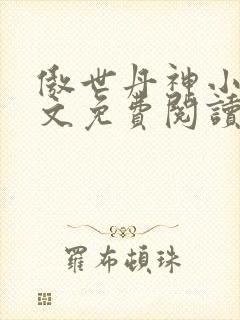 傲世丹神小
文免費閱讀
羅布頓珠